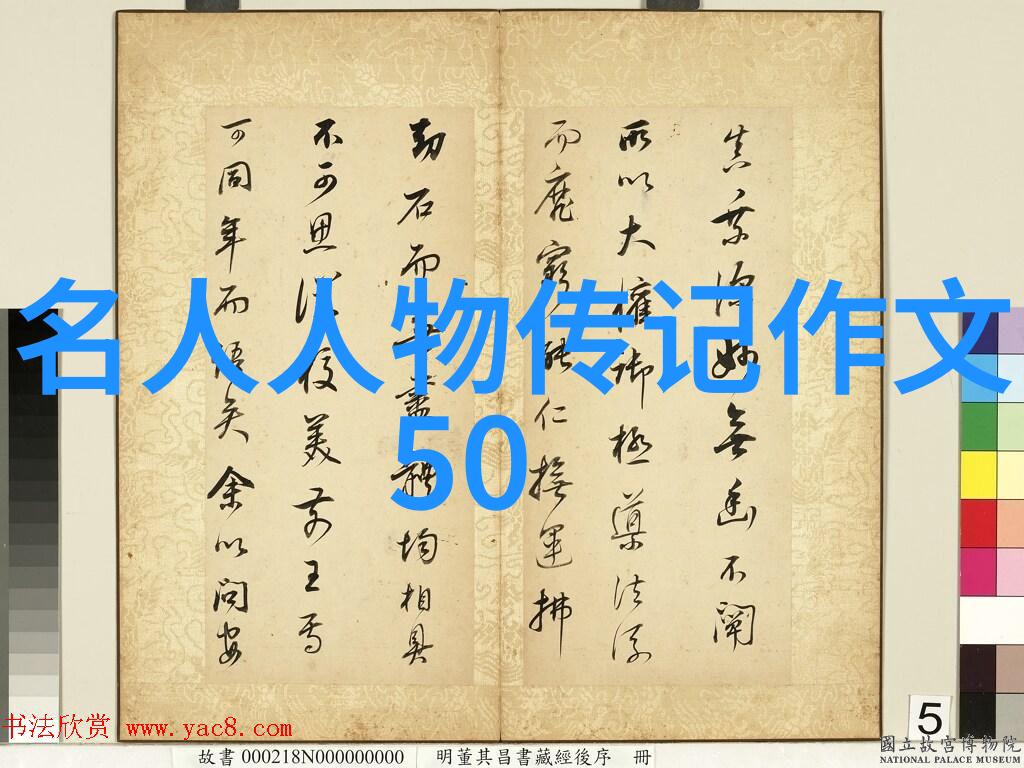 名人人物传记作文
50
真乘演妙無幽不闡
所以大權御極導法流
而靡窮能仁撫運拂
劫石而無盡體均相具
不可思議校美前王焉
可同年而語矣余以問安
5
书法欣赏 www.yac8.com
故書 000218N000000000 明董其昌書藏經後序 冊
國立故宮博物院
NATIONAL PALACE MUSEUM